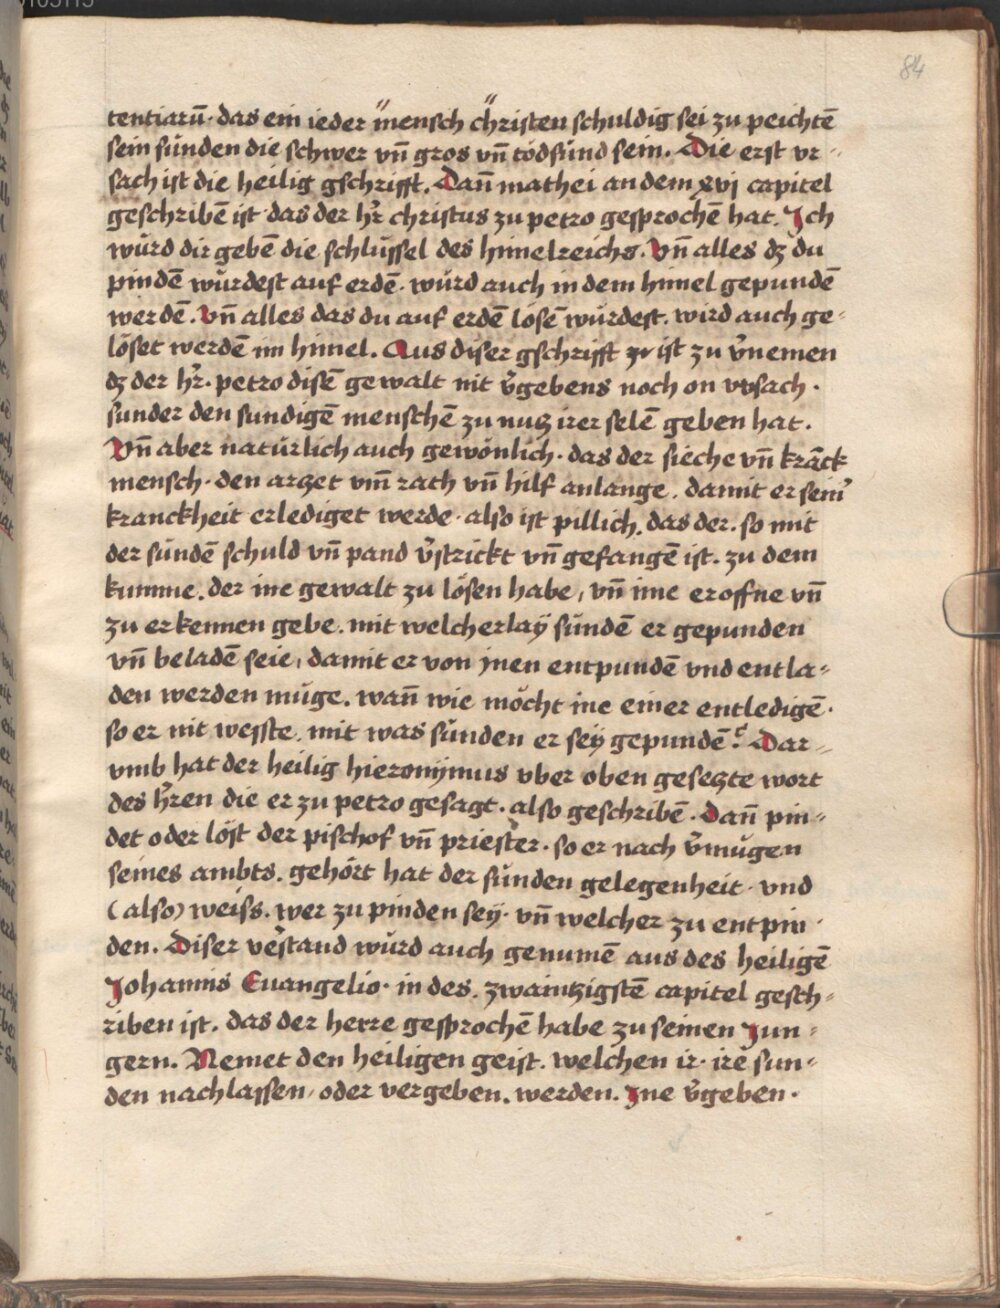 84
tentiarū· das ein ieder mensch christen schuldig sei zu peichtē
sein sünden die schwer vn̄ gros vn̄ tödsünd sein. Die erst vr-
sach ist die heilig gschrifft. Dan̄ mathei an dem xvj capitel
geschribē ist das der hr̄ christus zu petro gesprochē hat. Ich
würd dir gebē die schlüssel des himelreichs. Vn̄ alles dz du
pindē würdest auf erdē· würd auch in dem himel gepundē
werdē. Vn̄ alles das du auf erdē lösē würdest. wird auch ge-
löset werdē im himel. Aus diser gschrifft ist zu v̄nemen
dz der hr̄· petro disē gewalt nit v̄gebens noch on vrsach·
sunder den sundigē menschē zu nutz irer selē geben hat.
Vn̄ aber natürlich auch gewönlich· das der sieche vn̄ kranck
mensch· den artzet vm̄ rath vn̄ hilf anlange. damit er sein̄
kranckheit erlediget werde· also ist pillich. das der· so mit
der sündē schuld vn̄ pand v̄strickt vn̄ gefangē ist. zu dem
kumme. der ine gewalt zu lösen habe, vn̄ ime eroffne vn̄
zu erkennen gebe. mit welcherlaÿ sündē er gepunden
vn̄ beladē seie, damit er von jnen entpundē vnd entla-
den werden müge. wan̄ wie möcht ine einer entledigē·
so er nit wesste. mit was sünden er seÿ gepundē? Dar-
vmb hat der heilig hieronÿmus vber oben gesetzte wort
des hr̄en die er zu petro gesagt. also geschribē· Dan̄ pin-
det oder löst der pischof vn̄ priester· so er nach v̄mügen
seines ambts. gehört hat der sünden gelegenheit· vnd
(also) weiss. wer zu pinden seÿ· vn̄ welcher zu entpin-
den. Diser v̄estand würd auch genumē aus des heiligē
Johannis Euangelio· in des zwaintzigstē capitel gesch-
riben ist. das der herre gesprochē habe zu seinen Jun-
gern. Nemet den heiligen geist. welchen ir· irē sun-
den nachlassen, oder vergeben. werden. Jne v̄geben·